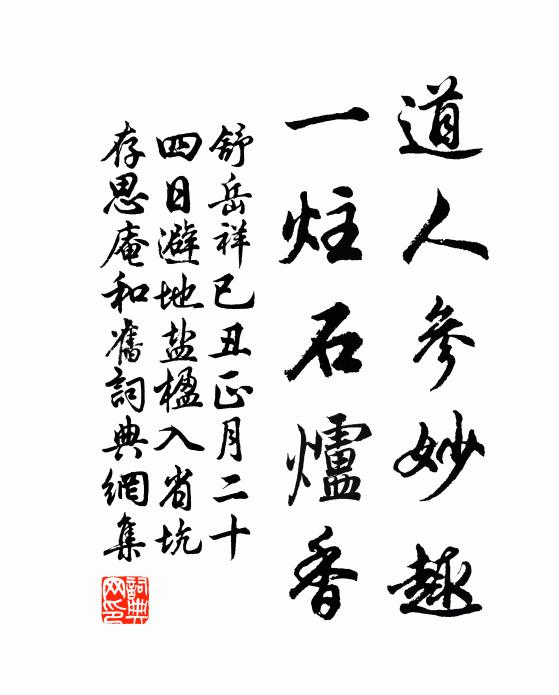 道人參妙趣
一炷石爐香
舒岳祥已丑正月二十
四日避地盐楹入省坑
存思庵和舊詞典網集
詞典網印